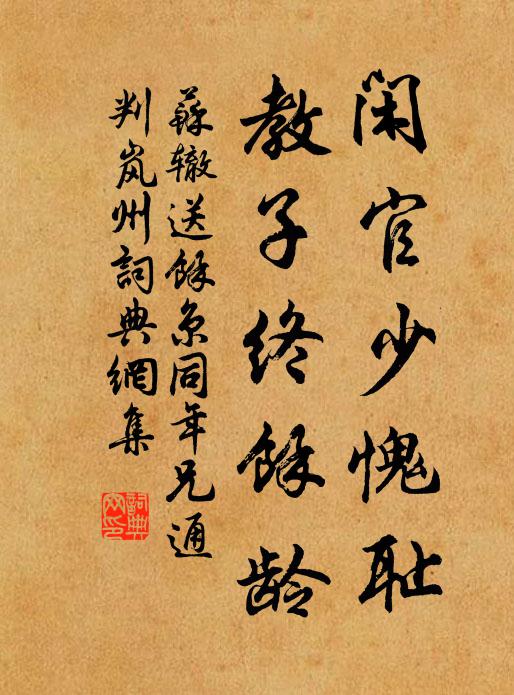 闲官少愧耻
教子终馀龄
蘇辙送馀京同年兄通
判岚州詞典網集
詞典
网印